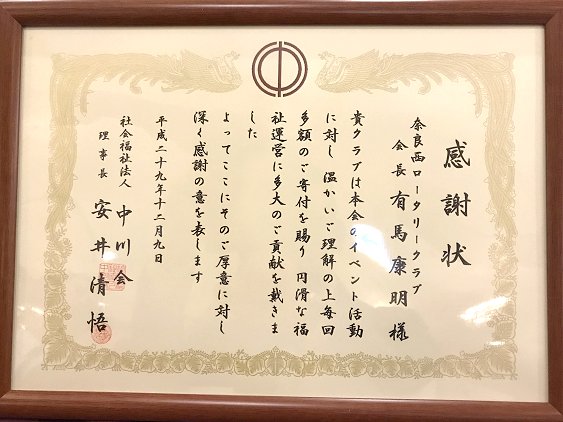 感謝状
奈良西ロータリークラブ
会長 有馬康明様
貴クラブは本会のイベント活動
に対し 温かいご理解の上毎回
多額のご寄付を賜り 円滑な福
祉運営に多大のご貢献を戴きま
した
よってここにそのご厚意に対し
深く感謝の意を表します
平成二十九年十二月九日
社会福祉法人 中川会
理事長 安井清悟